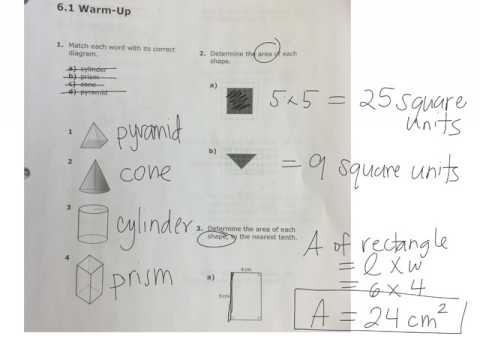 6.1 Warm-Up
1. Match each word with its correct
diagram.
a) cylinder
b) prism
c) cone
d) pyramid
1 pyramid
2 cone
3 cylinder
4 prism
2. Determine the area of each
shape.
a) 5 x 5 = 25 square
units
b) = 9 square units
3. Determine the area of each
shape, to the nearest tenth.
a)
4 cm
A of rectangle
= l x w
= 6 x 4
A = 24 cm²